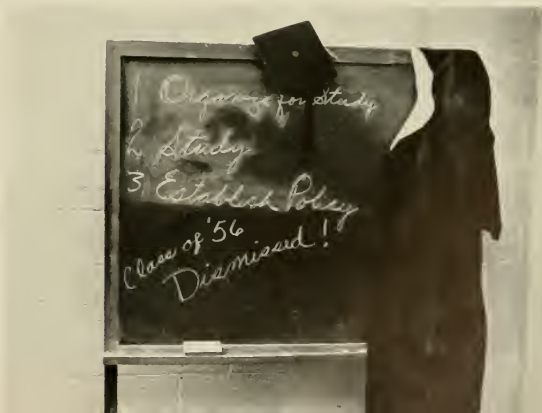 1 Organize for Study
2. Study
3. Establish Policy
Class of '56
Dismissed!